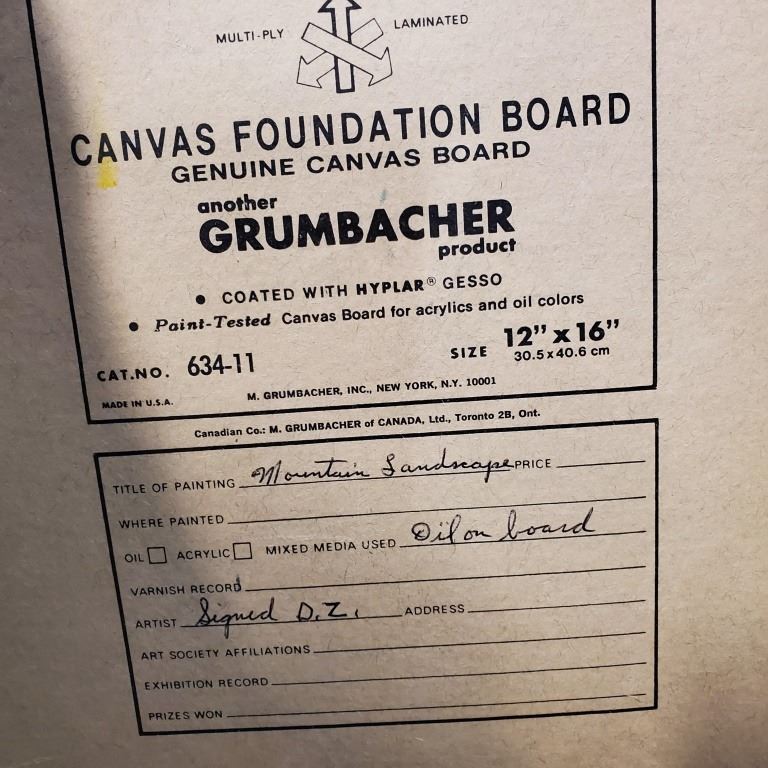 MULTI-PLY LAMINATED
CANVAS FOUNDATION BOARD
GENUINE CANVAS BOARD
another
GRUMBACHER
product
• COATED WITH HYPLAR® GESSO
• Paint-Tested Canvas Board for acrylics and oil colors
CAT.NO. 634-11 SIZE 12" x 16"
30.5 x 40.6 cm
MADE IN U.S.A. M. GRUMBACHER, INC., NEW YORK, N.Y. 10001
Canadian Co.: M. GRUMBACHER of CANADA, Ltd., Toronto 2B, Ont.
TITLE OF PAINTING Mountain Landscape PRICE
WHERE PAINTED
OIL ☐ ACRYLIC ☐ MIXED MEDIA USED Oil on board
VARNISH RECORD
ARTIST Signed D.Z. ADDRESS
ART SOCIETY AFFILIATIONS
EXHIBITION RECORD
PRIZES WON